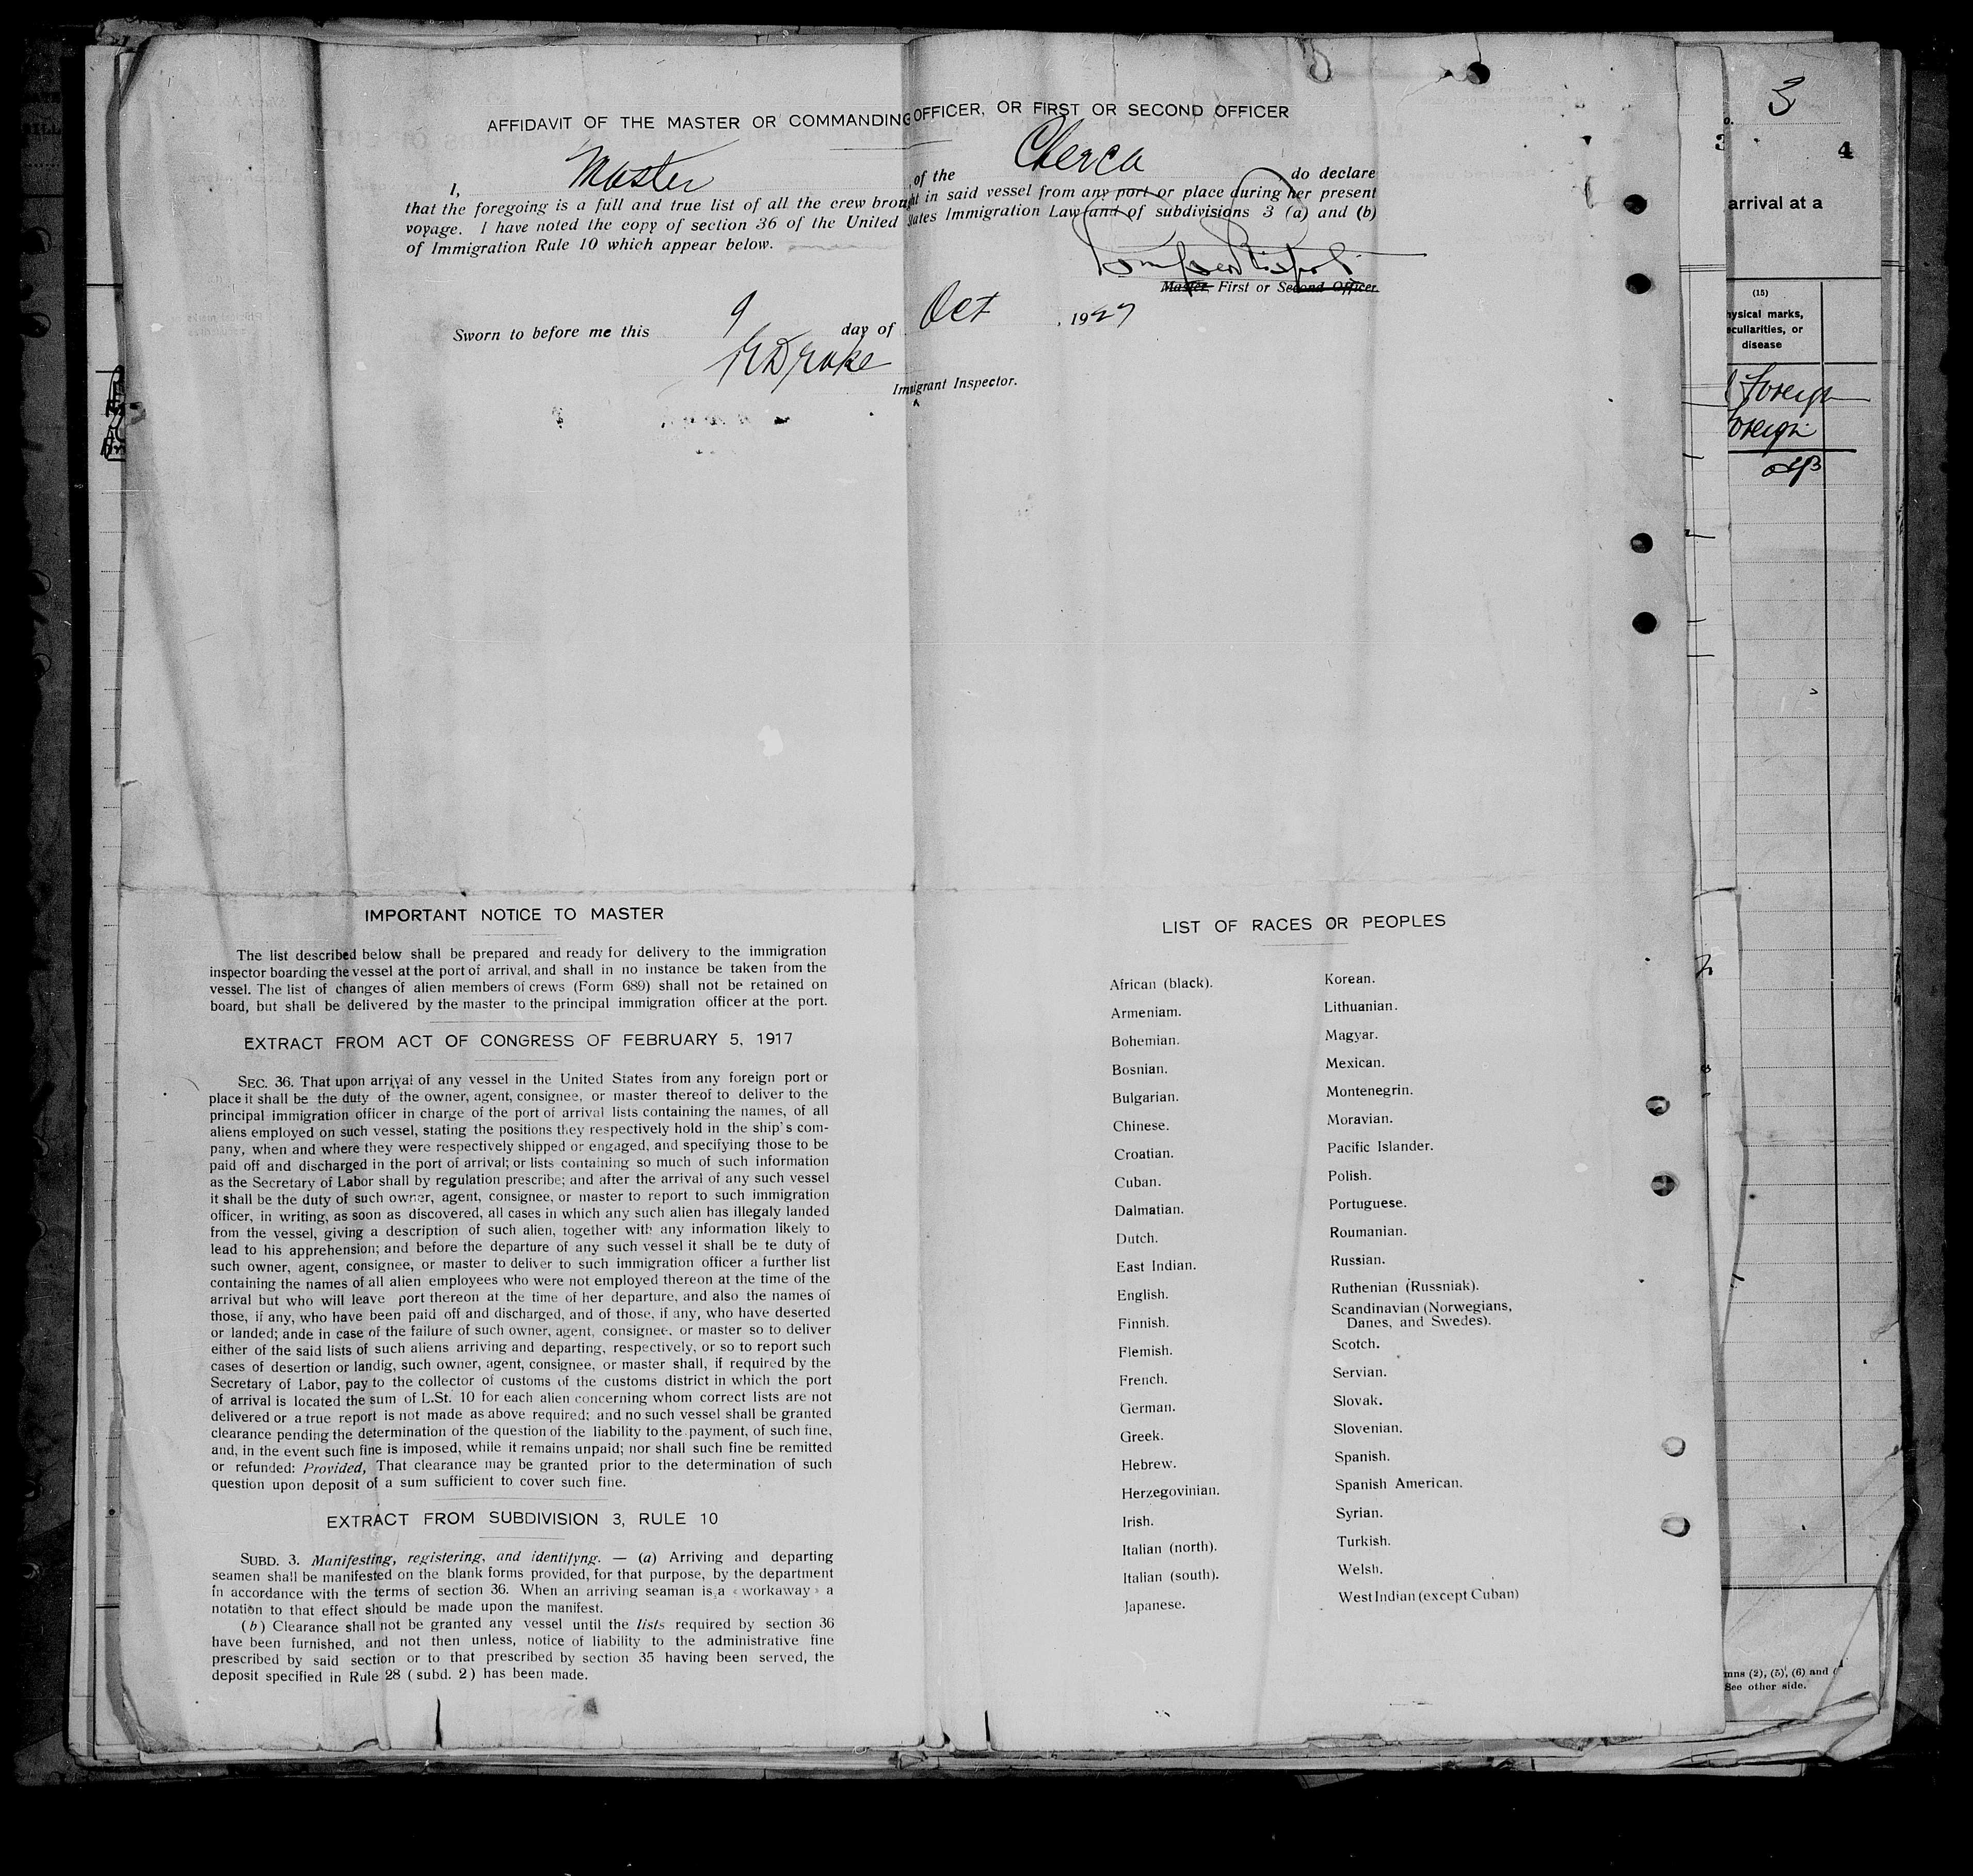 AFFIDAVIT OF THE MASTER OR COMMANDING OFFICER, OR FIRST OR SECOND OFFICER
I, Master of the Cherca do declare
that the foregoing is a full and true list of all the crew brought in said vessel from any port or place during her present
voyage. I have noted the copy of section 36 of the United States Immigration Law and of subdivisions 3 (a) and (b)
of Immigration Rule 10 which appear below.
Master, First or Second Officer.
Sworn to before me this 9 day of Oct, 1927
Drake
Immigrant Inspector.
IMPORTANT NOTICE TO MASTER
The list described below shall be prepared and ready for delivery to the immigration
inspector boarding the vessel at the port of arrival, and shall in no instance be taken from the
vessel. The list of changes of alien members of crews (Form 689) shall not be retained on
board, but shall be delivered by the master to the principal immigration officer at the port.
EXTRACT FROM ACT OF CONGRESS OF FEBRUARY 5, 1917
SEC. 36. That upon arrival of any vessel in the United States from any foreign port or
place it shall be the duty of the owner, agent, consignee, or master thereof to deliver to the
principal immigration officer in charge of the port of arrival lists containing the names, of all
aliens employed on such vessel, stating the positions they respectively hold in the ship's com-
pany, when and where they were respectively shipped or engaged, and specifying those to be
paid off and discharged in the port of arrival; or lists containing so much of such information
as the Secretary of Labor shall by regulation prescribe; and after the arrival of any such vessel
it shall be the duty of such owner, agent, consignee, or master to report to such immigration
officer, in writing, as soon as discovered, all cases in which any such alien has illegaly landed
from the vessel, giving a description of such alien, together with any information likely to
lead to his apprehension; and before the departure of any such vessel it shall be te duty of
such owner, agent, consignee, or master to deliver to such immigration officer a further list
containing the names of all alien employees who were not employed thereon at the time of the
arrival but who will leave port thereon at the time of her departure, and also the names of
those, if any, who have been paid off and discharged, and of those, if any, who have deserted
or landed; ande in case of the failure of such owner, agent, consignee, or master so to deliver
either of the said lists of such aliens arriving and departing, respectively, or so to report such
cases of desertion or landig, such owner, agent, consignee, or master shall, if required by the
Secretary of Labor, pay to the collector of customs of the customs district in which the port
of arrival is located the sum of L.St. 10 for each alien concerning whom correct lists are not
delivered or a true report is not made as above required; and no such vessel shall be granted
clearance pending the determination of the question of the liability to the payment, of such fine,
and, in the event such fine is imposed, while it remains unpaid; nor shall such fine be remitted
or refunded: Provided, That clearance may be granted prior to the determination of such
question upon deposit of a sum sufficient to cover such fine.
EXTRACT FROM SUBDIVISION 3, RULE 10
SUBD. 3. Manifesting, registering, and identifyng. — (a) Arriving and departing
seamen shall be manifested on the blank forms provided, for that purpose, by the department
in accordance with the terms of section 36. When an arriving seaman is a « workaway » a
notation to that effect should be made upon the manifest.
(b) Clearance shall not be granted any vessel until the lists required by section 36
have been furnished, and not then unless, notice of liability to the administrative fine
prescribed by said section or to that prescribed by section 35 having been served, the
deposit specified in Rule 28 (subd. 2) has been made.
LIST OF RACES OR PEOPLES
African (black).
Armeniam.
Bohemian.
Bosnian.
Bulgarian.
Chinese.
Croatian.
Cuban.
Dalmatian.
Dutch.
East Indian.
English.
Finnish.
Flemish.
French.
German.
Greek.
Hebrew.
Herzegovinian.
Irish.
Italian (north).
Italian (south).
Japanese.
Korean.
Lithuanian.
Magyar.
Mexican.
Montenegrin.
Moravian.
Pacific Islander.
Polish.
Portuguese.
Roumanian.
Russian.
Ruthenian (Russniak).
Scandinavian (Norwegians,
Danes, and Swedes).
Scotch.
Servian.
Slovak.
Slovenian.
Spanish.
Spanish American.
Syrian.
Turkish.
Welsh.
West Indian (except Cuban)
3
3
4
arrival at a
(15)
hysical marks,
eculiarities, or
disease
Foreign
Foreign
mns (2), (5), (6) and (
See other side.